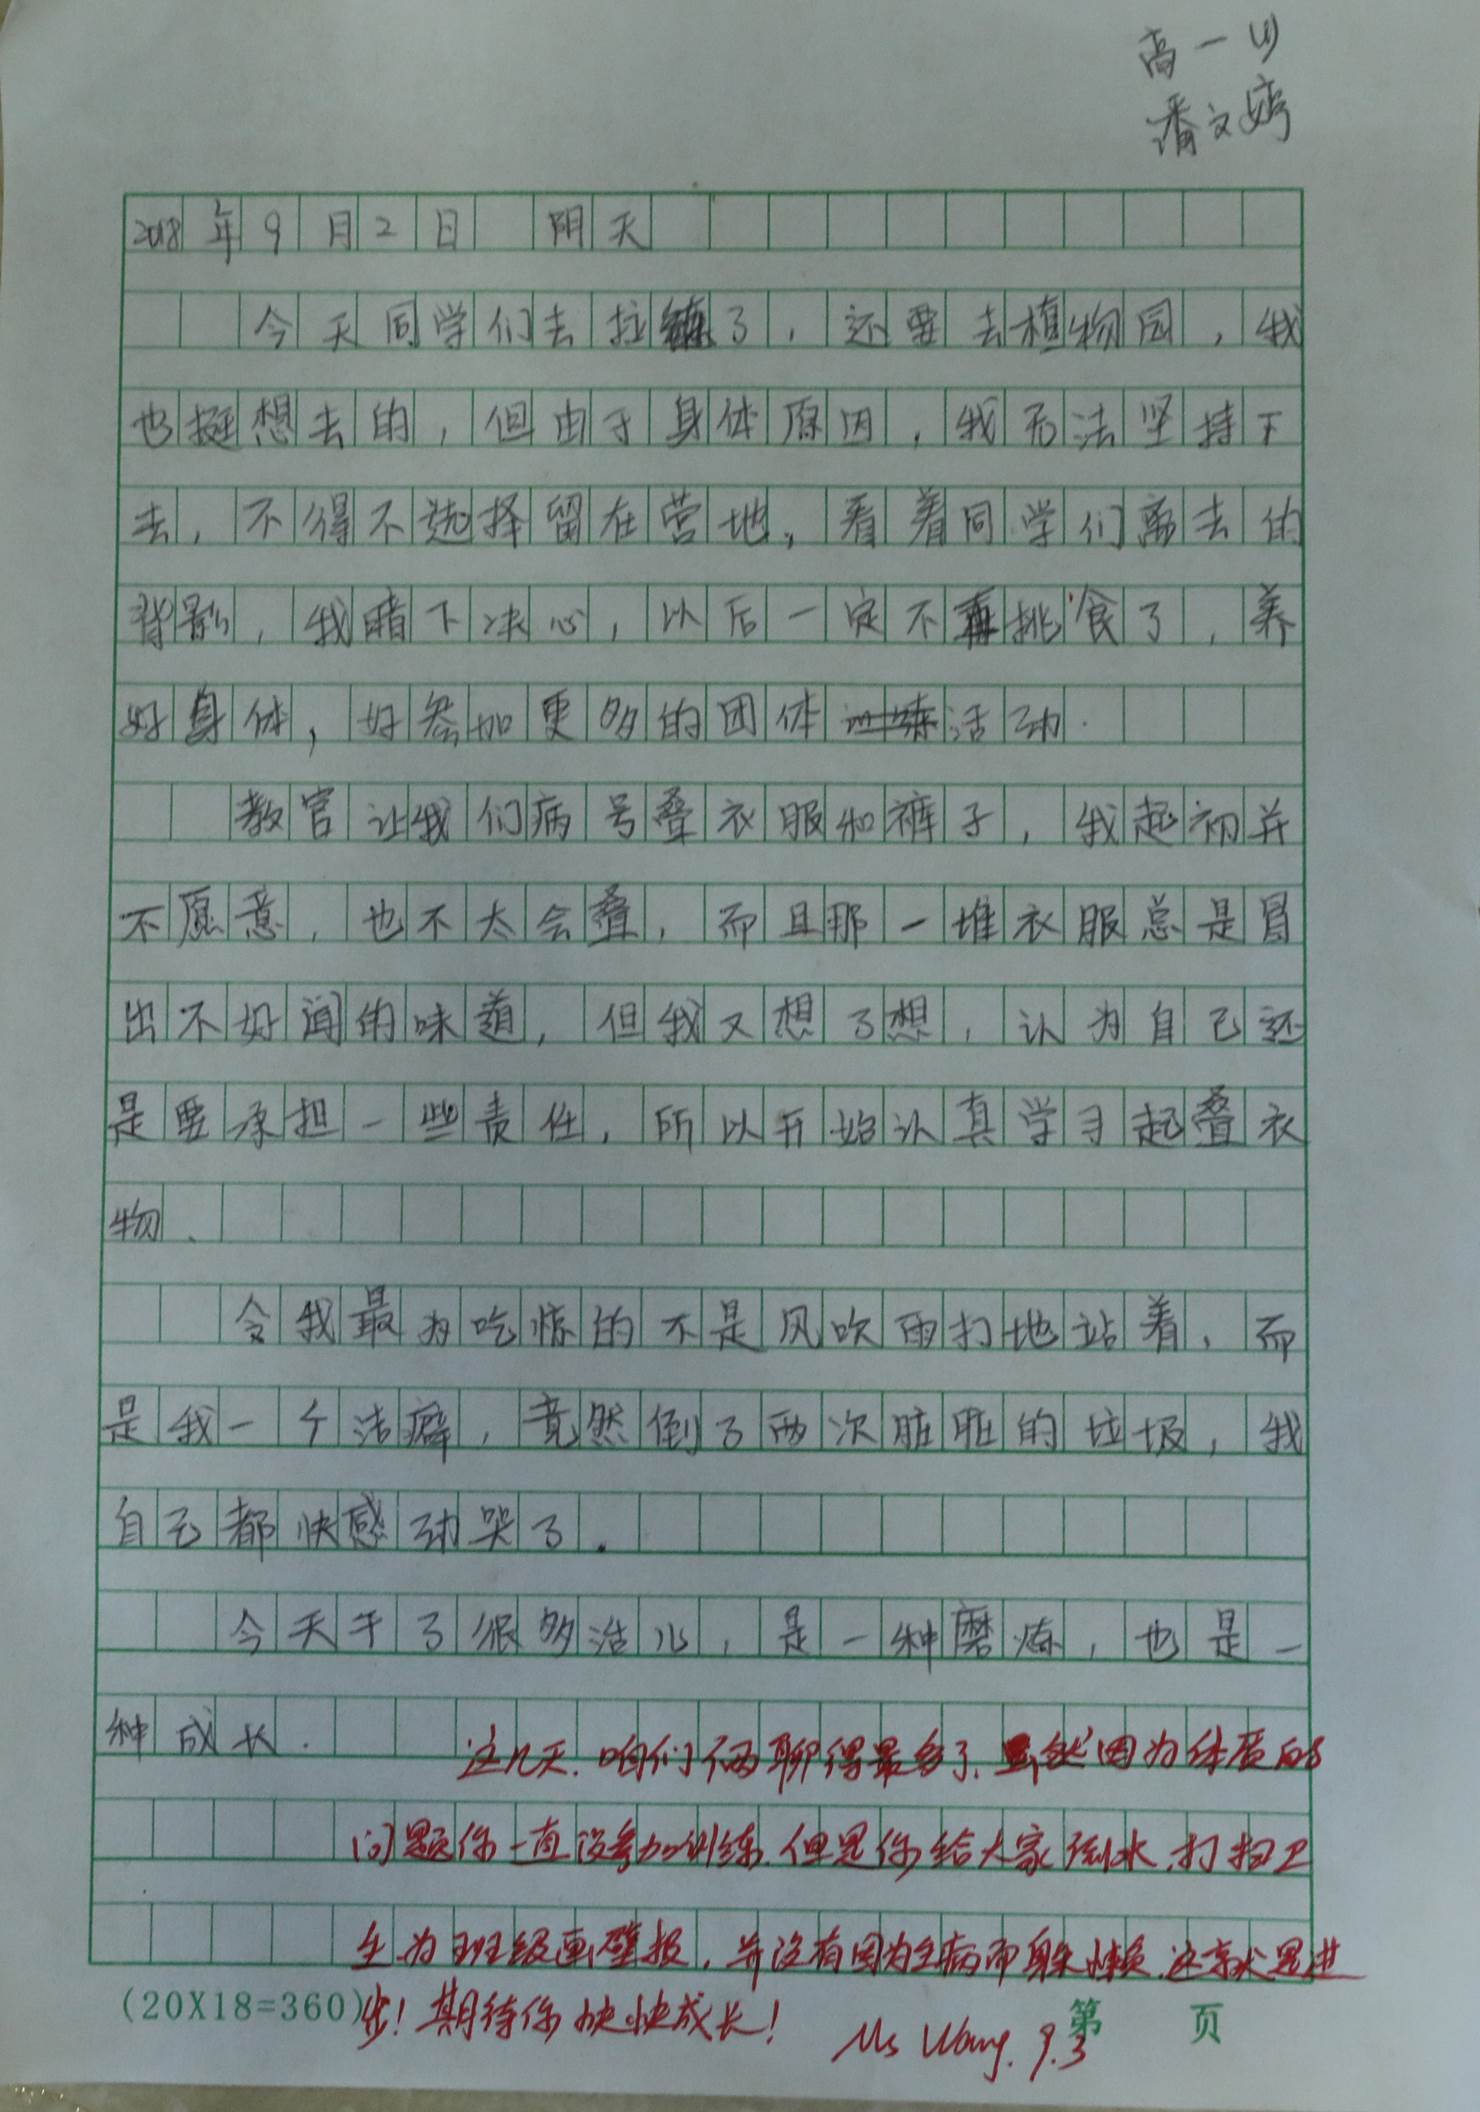 高一(1)
潘文婷
2018年9月2日 阴天
今天同学们去拉练了,还要去植物园,我
也挺想去的,但由于身体原因,我无法坚持下
去,不得不选择留在营地,看着同学们离去的
背影,我暗下决心,以后一定不再挑食了,养
好身体,好参加更多的团体活动.
教官让我们病号叠衣服和裤子,我起初并
不愿意,也不太会叠,而且那一堆衣服总是冒
出不好闻的味道,但我又想了想,认为自己还
是要承担一些责任,所以开始认真学习起叠衣
物.
令我最为吃惊的不是风吹雨打地站着,而
是我一个洁癖,竟然倒了两次脏脏的垃圾,我
自己都快感动哭了.
今天干了很多活儿,是一种磨炼,也是一
种成长.
这几天,咱们俩聊得最多了,虽然因为体质的
问题你一直没参加训练,但是你给大家倒水,打扫卫
生,为班级画壁报,并没有因为生病而躲懒,这就是进
步!期待你快快成长!
Ms Wang. 9.3
(20X18=360)
第 页